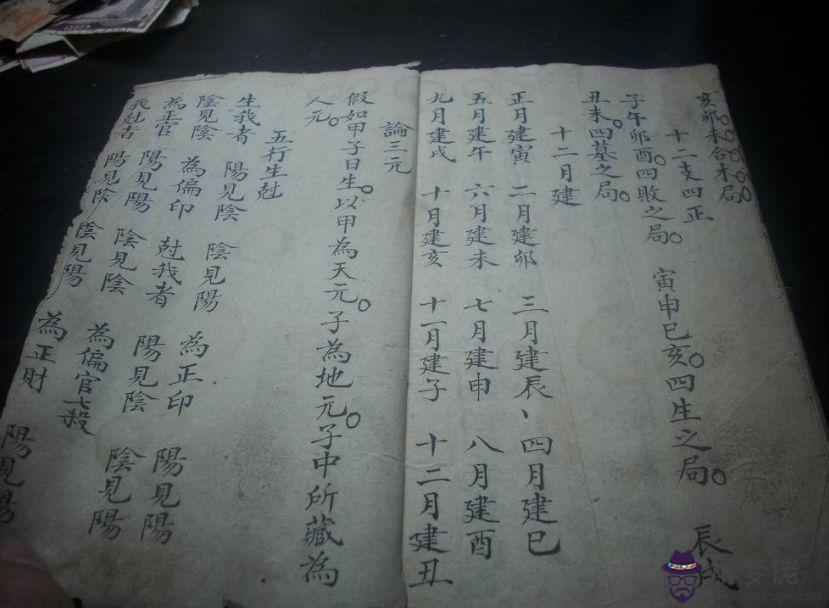 亥卯未合木局。
十二支四正
子午卯酉。四敗之局。寅申巳亥。四生之局。辰戌
丑未。四墓之局。
十二月建
正月建寅 二月建卯 三月建辰、四月建巳
五月建午 六月建未 七月建申 八月建酉
九月建戌 十月建亥 十一月建子 十二月建丑
論三元
假如甲子日生。以甲為天元。子為地元。子中所藏為
人元。
五行生尅
生我者 陽見陰 陰見陽 為正印 陽見陽
陰見陰 為偏印 尅我者 陽見陰 陰見陽
為正官 陽見陽 陰見陰 為偏官七殺
我尅者 陽見陰 陰見陽 為正財 陽見陽